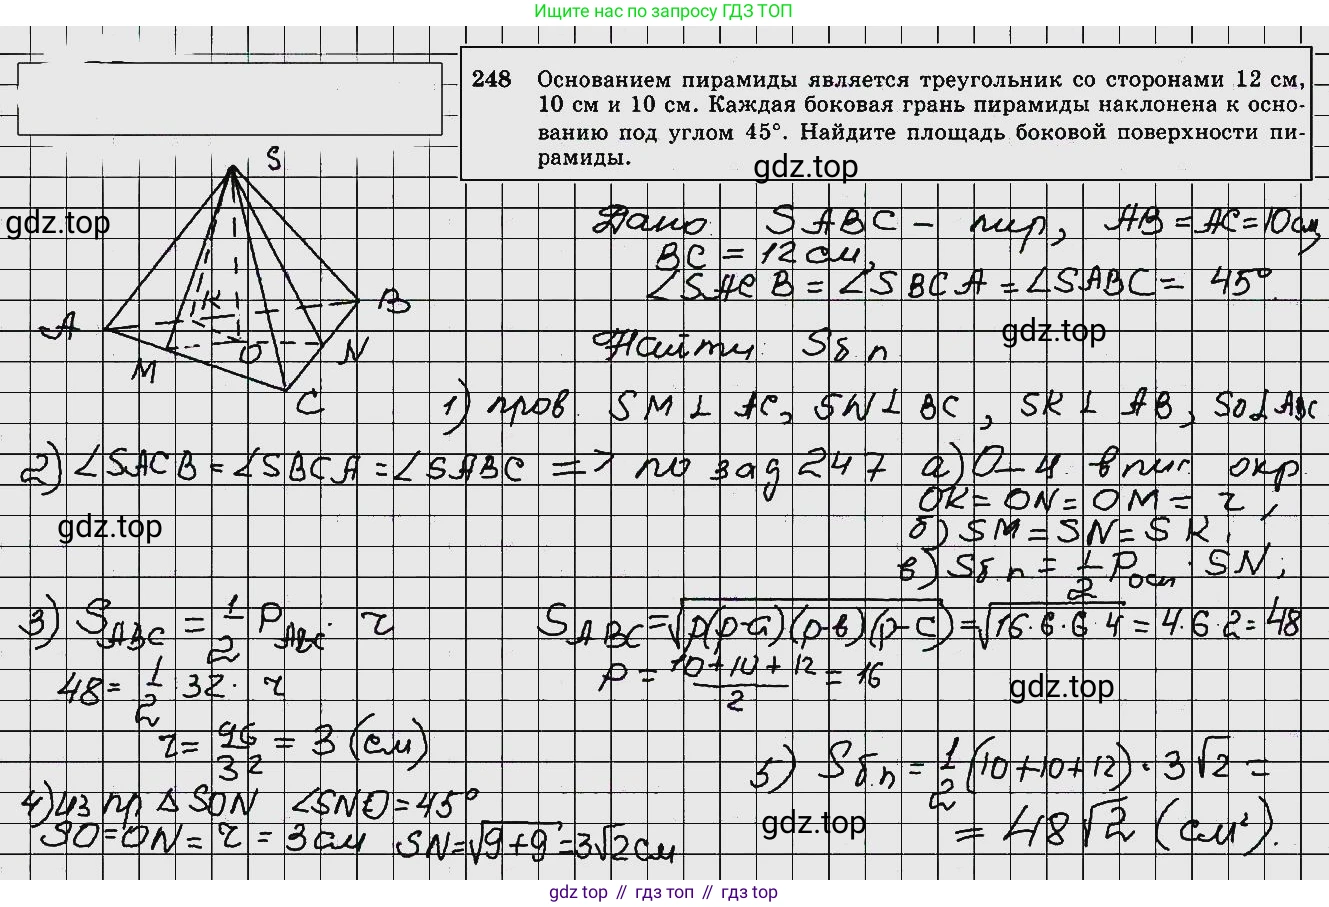 Ищите нас по запросу ГДЗ ТОП
248 Основанием пирамиды является треугольник со сторонами 12 см,
10 см и 10 см. Каждая боковая грань пирамиды наклонена к осно-
ванию под углом 45°. Найдите площадь боковой поверхности пи-
рамиды.
gdz.top
S
gdz.top
A
K
B
M
O
N
C
Дано SABC – пир, AB = AC = 10 см,
BC = 12 см,
∠SACB = ∠SBCA = ∠SABC = 45°.
gdz.top
Найти: Sбп
1) пров. SM ⊥ AC, SN ⊥ BC, SK ⊥ AB, SO ⊥ ABC
2) ∠SACB = ∠SBCA = ∠SABC => по зад 247 а) O – ц. впис. окр.
OK = ON = OM = r;
gdz.top
б) SM = SN = SK;
в) Sбп = 1/2 Pосн · SN;
3) S ABC = 1/2 P ABC · r
S ABC = √p(p-a)(p-в)(p-c) = √16·6·6·4 = 4·6·2 = 48
48 = 1/2 32 · r
p = 10+10+12/2 = 16
gdz.top
r = 96/32 = 3 (см)
4) из пр Δ SON ∠SNO = 45°
SO = ON = r = 3 см SN = √9+9 = 3√2 см
5) Sб.п = 1/2 (10+10+12) · 3√2 =
gdz.top
= 48√2 (см²).
gdz top // гдз топ // gdz top